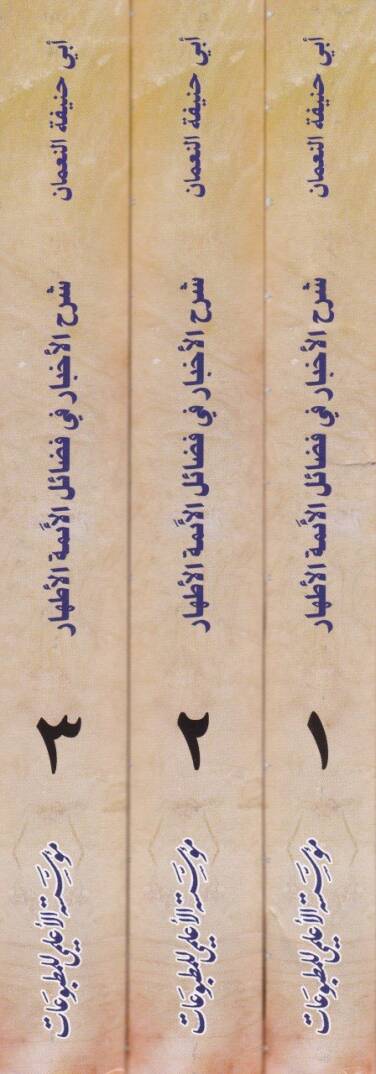 أبي حنيفة النعمان
شرح الأخبار في فضائل الأئمة الأطهار
١
مؤسسة الأعلمي للمطبوعات
أبي حنيفة النعمان
شرح الأخبار في فضائل الأئمة الأطهار
٢
مؤسسة الأعلمي للمطبوعات
أبي حنيفة النعمان
شرح الأخبار في فضائل الأئمة الأطهار
٣
مؤسسة الأعلمي للمطبوعات